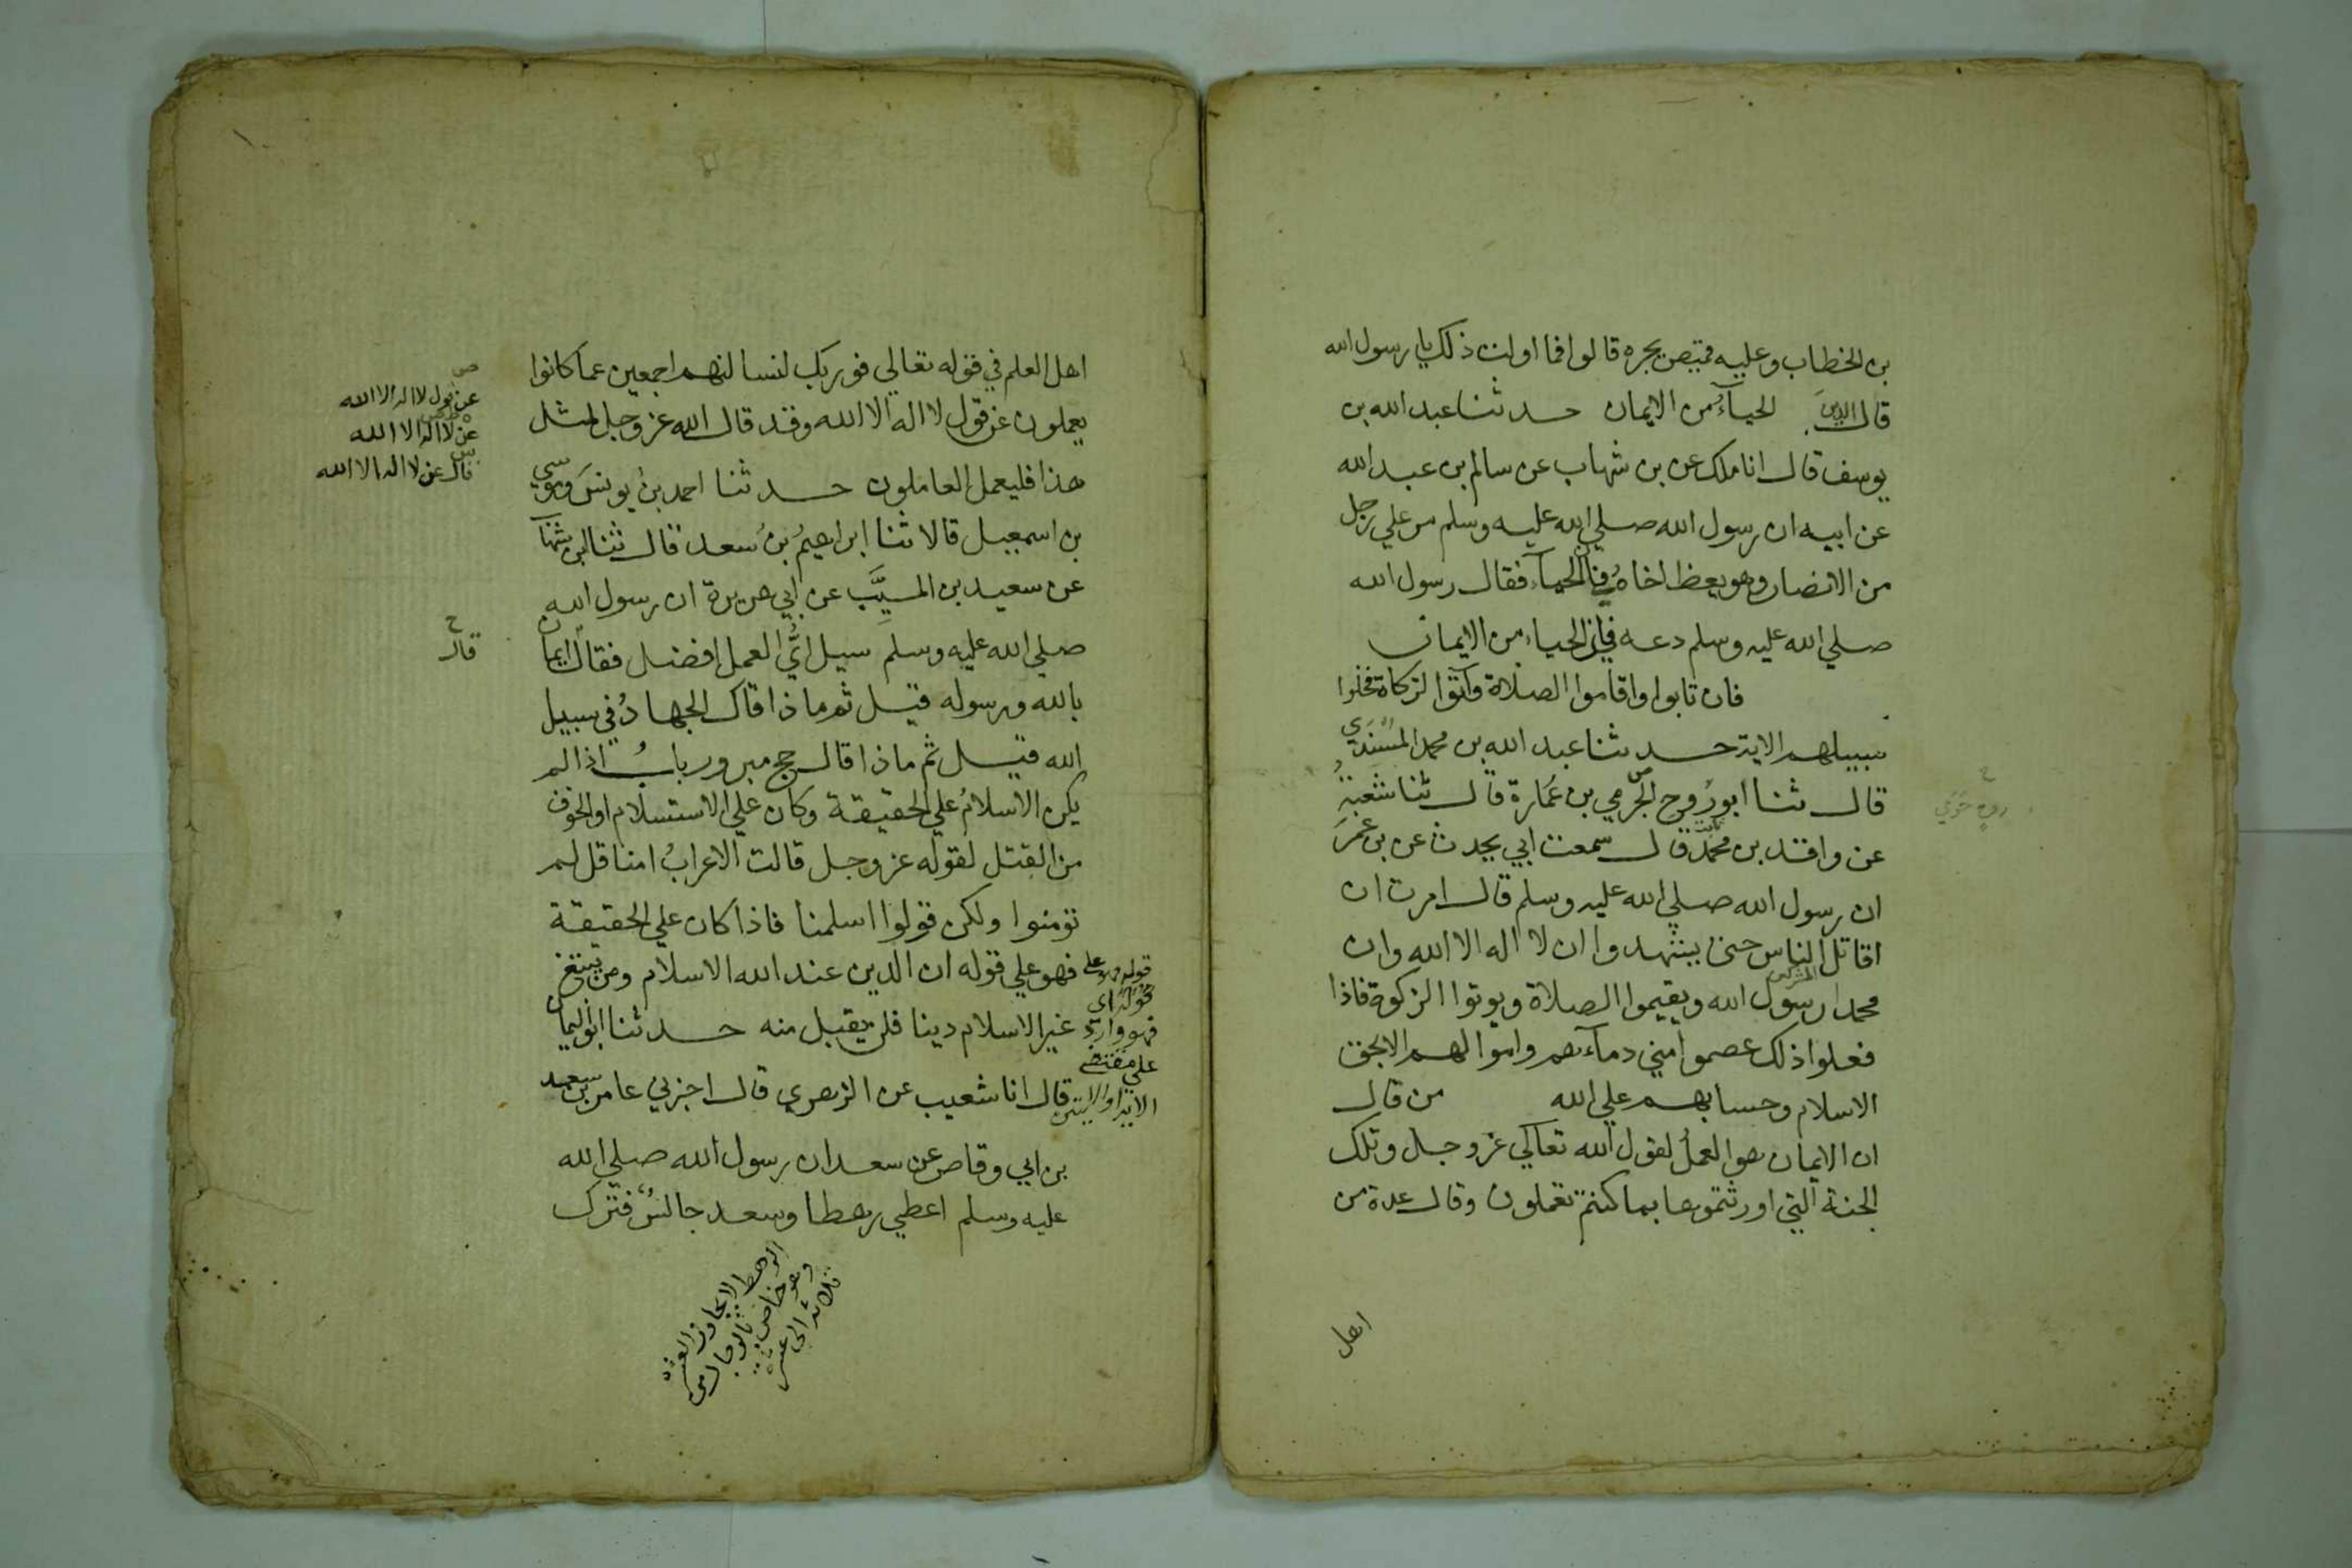 بن الخطاب وعليه قميص يجره قالوا فما اولت ذلك يا رسول الله
قال الدينَ الحياءُ من الايمان حدثنا عبد الله بن
يوسف قال انا ملك عن بن شهاب عن سالم بن عبد الله
عن ابيه ان رسول الله صلي الله عليه وسلم مر علي رجل
من الانصار وهو يعظ اخاهُ في الحياء فقال رسول الله
صلي الله عليه وسلم دعه فان الحياء من الايمان
فان تابوا واقاموا الصلاة وآتوا الزكاة فخلوا
سبيلهم الاية حدثنا عبد الله بن محمد المسندي
قال ثنا ابو رَوح الحَرَمي بن عُمارة قال ثنا شعبة
عن واقد بن محمد قال سمعت ابي يحدث عن بن عمرَ
ان رسول الله صلي الله عليه وسلم قال امرت ان
اقاتل الناس حتى يشهدوا ان لا اله الا الله وان
محمدا رسول الله ويقيموا الصلاة ويوتوا الزكوة فاذا
فعلوا ذلك عصموا مني دماءهم واموالهم الا بحق
الاسلام وحسابهم علي الله من قال
ان الايمان هو العملُ لقول الله تعالي عز وجل وتلك
الجنة التي اورثتموها بما كنتم تعملون وقال عدة من
اهل
اهل العلم في قوله تعالي فوربك لنسالنهم اجمعين عما كانوا
يعملون عن قول لا اله الا الله وقد قال الله عز وجل لمثل
هذا فليعمل العاملون حدثنا احمد بنُ يونسَ وموسي
بن اسمعيل قالا ثنا ابراهيمُ بنُ سعد قال ثنا ابن شهاب
عن سعيد بن المسيَّب عن ابي هريرة ان رسول الله
صلي الله عليه وسلم سيل ايُّ العمل افضل فقال ايمان
بالله ورسوله قيل ثم ماذا قال الجهادُ في سبيل
الله قيل ثم ماذا قال حج مبرور بابُ اذا لم
يكن الاسلامُ علي الحقيقة وكان علي الاستسلام او الخوف
من القتل لقوله عز وجل قالت الاعرابُ امنا قل لم
تؤمنوا ولكن قولوا اسلمنا فاذا كان علي الحقيقة
فهو علي قوله ان الدين عند الله الاسلام ومن يبتغ
غير الاسلام دينا فلن يقبل منه حدثنا ابو اليمان
قال انا شعيب عن الزهري قال اخبرني عامر بن سعد
بن ابي وقاص عن سعد ان رسول الله صلي الله
عليه وسلم اعطي رهطا وسعد جالسٌ فترك
عن قول لا اله الا الله
عن لا اله الا الله
قال عن لا اله الا الله
قال
قوله فهو علي
قوله اي
فهو وارد
علي مقتضي